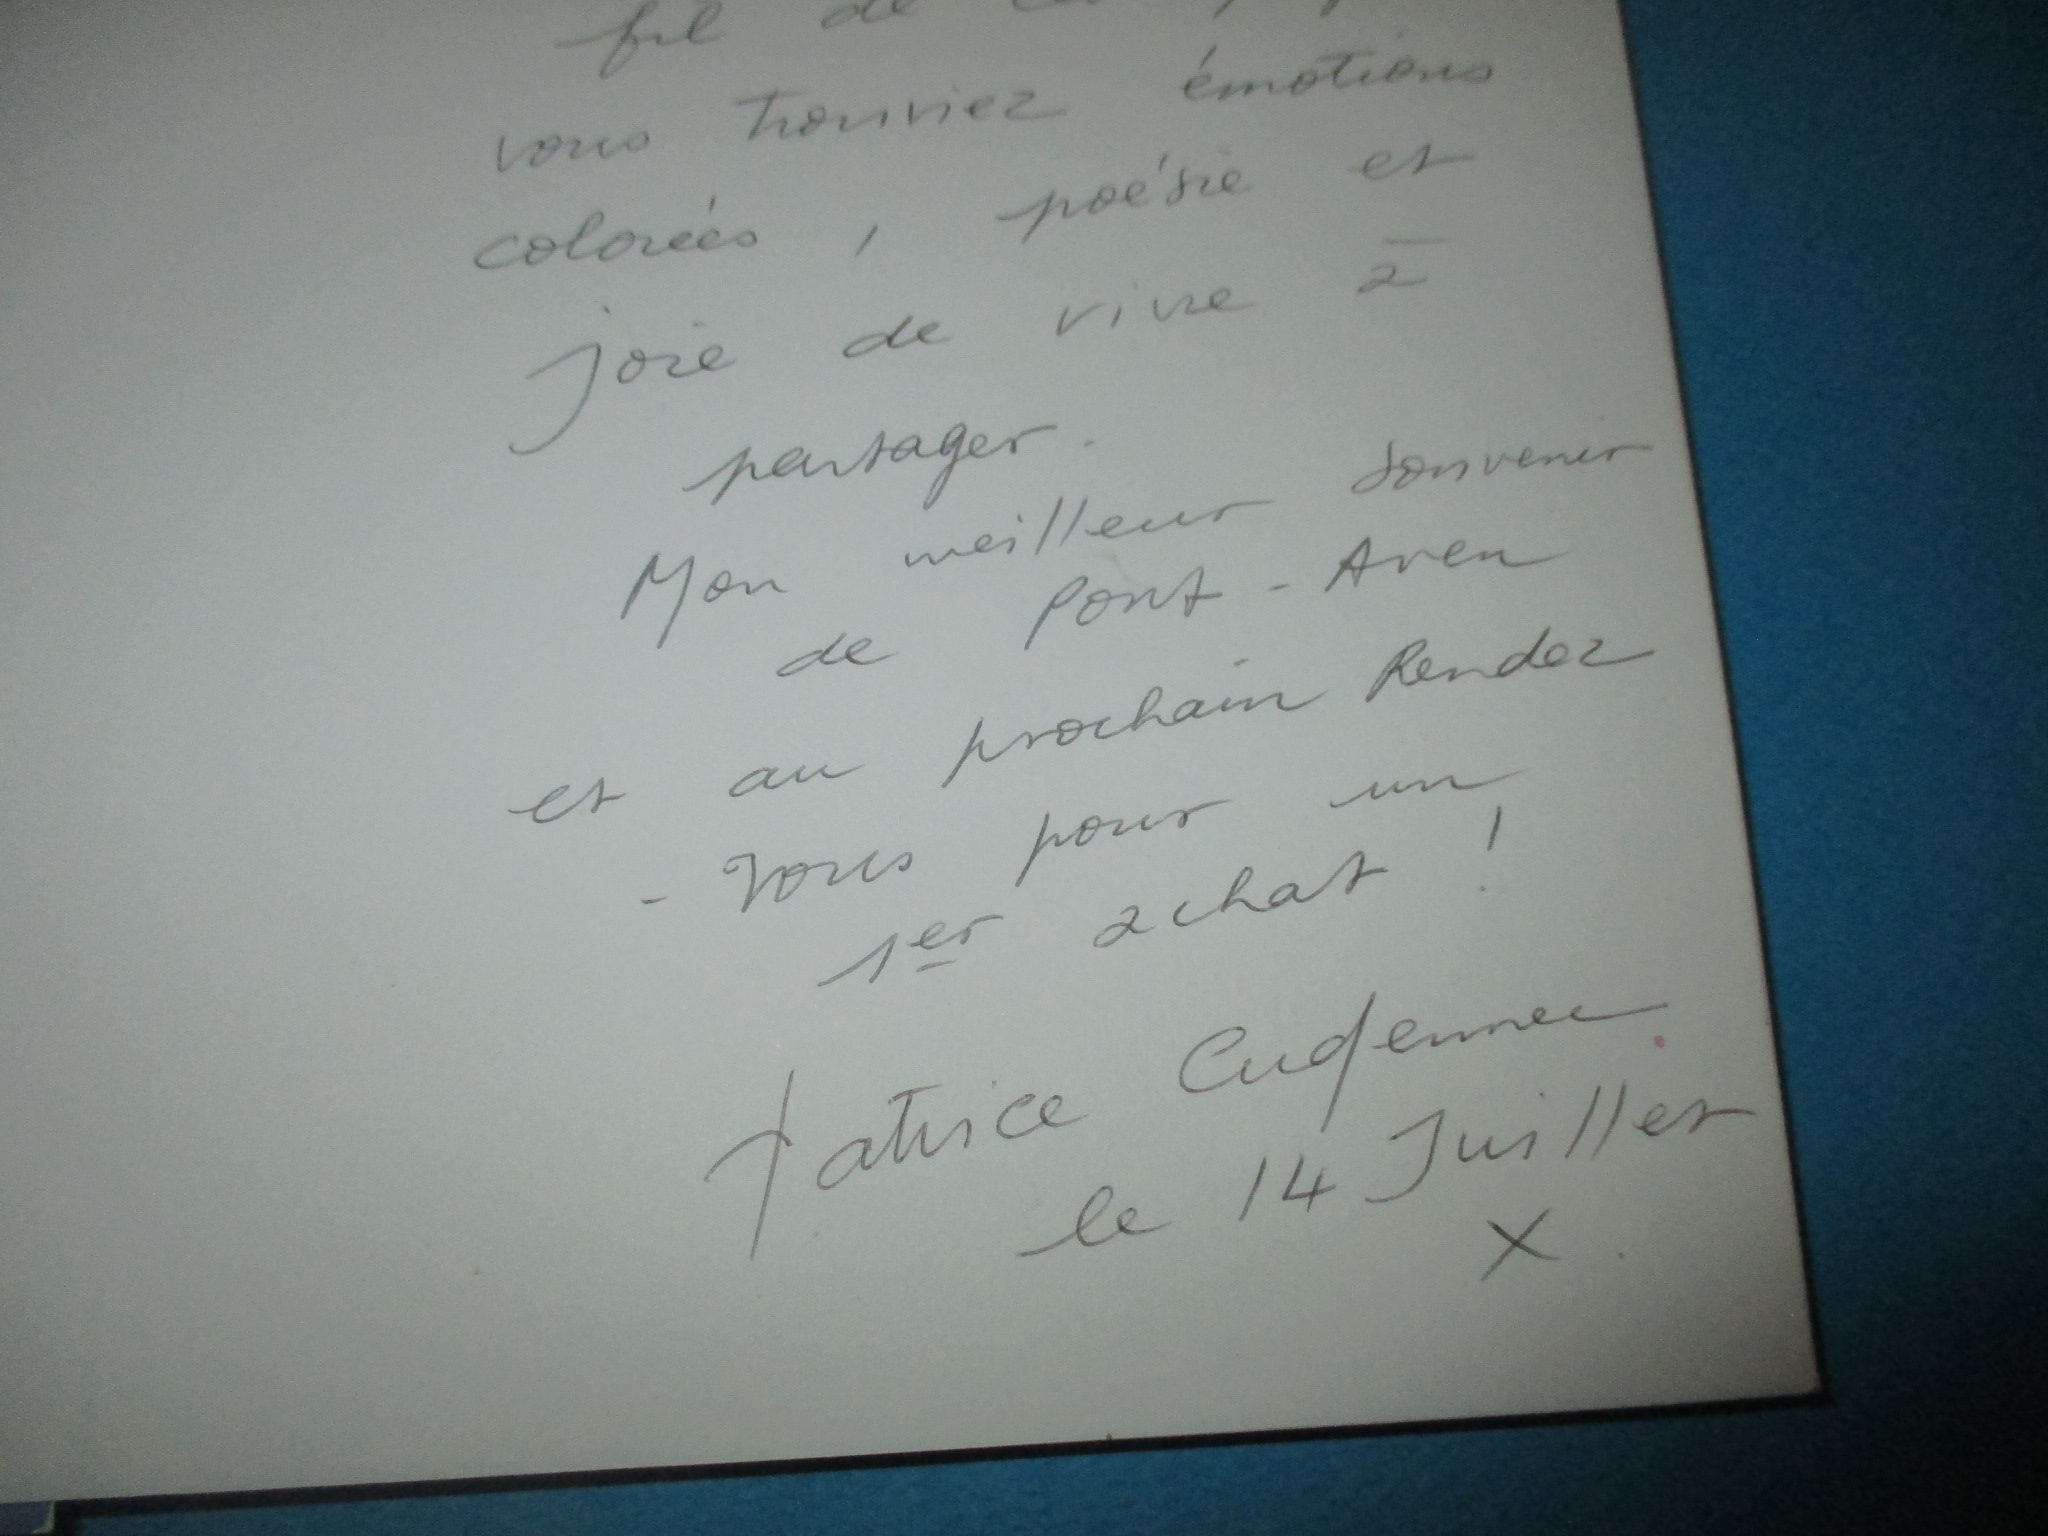 fil de
vous trouviez émotions
colorées, poésie et
joie de vivre à
partager.
Mon meilleur souvenir
de Pont-Aven
et au prochain Rendez
- Vous pour un
1er achat !
Patrice Cudennec
le 14 Juillet
X